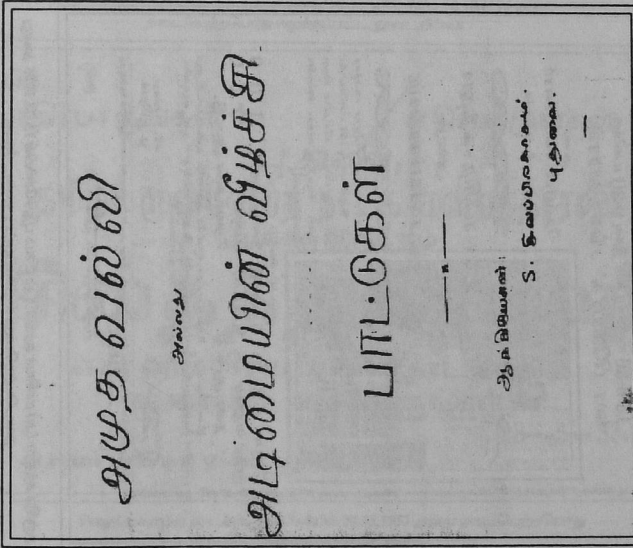 அமுதவல்லி
அல்லது
அடிமையின் வீழ்ச்சி
பாட்டுகள்
ஆக்கியோன்:
S. சிவப்பிரகாசம்.
புதுவை.